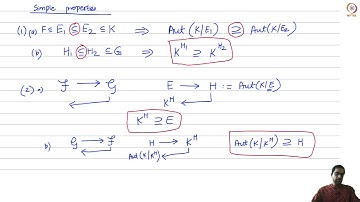 Simple properties
(1) (a) F ⊆ E₁ ⊆ E₂ ⊆ K ⟹ Aut (K/E₁) ⊇ Aut(K/E₂)
(b) H₁ ⊆ H₂ ⊆ G ⟹ K^H₁ ⊇ K^H₂
(2) a) F ⟶ G E ⟶ H := Aut(K/E)
K^H ⟵
K^H ⊇ E
b) G ⟶ F H ⟶ K^H Aut(K/K^H) ⊇ H
Aut(K/K^H) ⟵